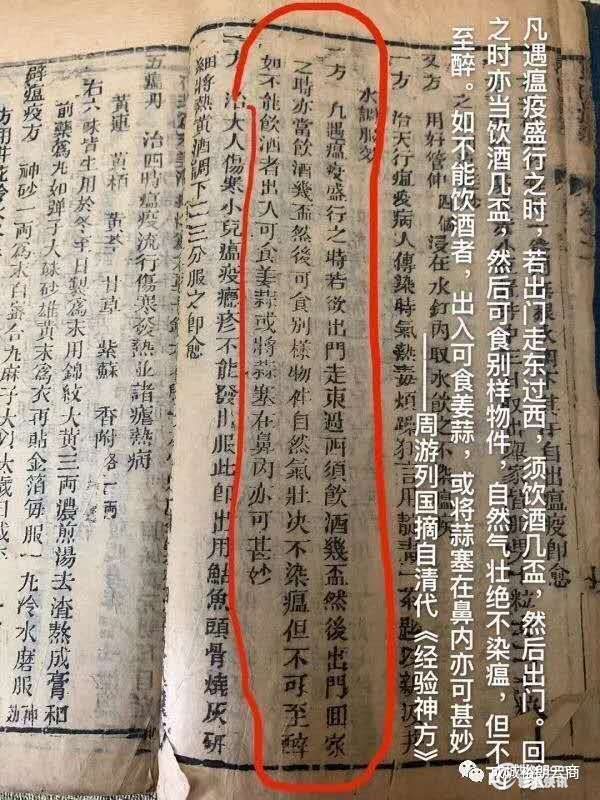 凡遇瘟疫盛行之时，若出门走东过西，须饮酒几盃，然后出门。回
之时亦当饮酒几盃，然后可食别样物件，自然气壮绝不染瘟，但不
至醉。如不能饮酒者，出入可食姜蒜，或将蒜塞在鼻内亦可甚妙
——周游列国摘自清代《经验神方》
自出瘟疫即愈
又方 用好管仲四個浸在水缸內取水飲之不染瘟疫
一方 治天行瘟疫病人傳染時氣熱毒煩躁狂言用靛青一茶匙以新汲井
水調服效
一方 凡遇瘟疫盛行之時若欲出門走東過西須飲酒幾盃然後出門回家
之時亦當飲酒幾盃然後可食別樣物件自然氣壯决不染瘟但不可至醉
如不能飲酒者出入可食姜蒜或將蒜塞在鼻內亦可甚妙
一方 治大人傷寒小兒瘟疫癮疹不能發出服此即出用鮎魚頭骨燒灰研
細將熱黃酒調下二三分服之即愈
五瘟丹 治四時瘟疫流行傷寒發熱並諸瘧熱病
黃連 黃柏 黃芩 甘草 紫蘇 香附各一両
右六味皆生用於冬至日製爲末用錦紋大黃三両濃煎湯去渣熬成膏和
前藥爲丸如彈子大硃砂雄黃末爲衣再貼金箔每服一丸冷水磨服神効
辟瘟疫方 神砂一両爲末白蜜合丸麻子大以太歲日